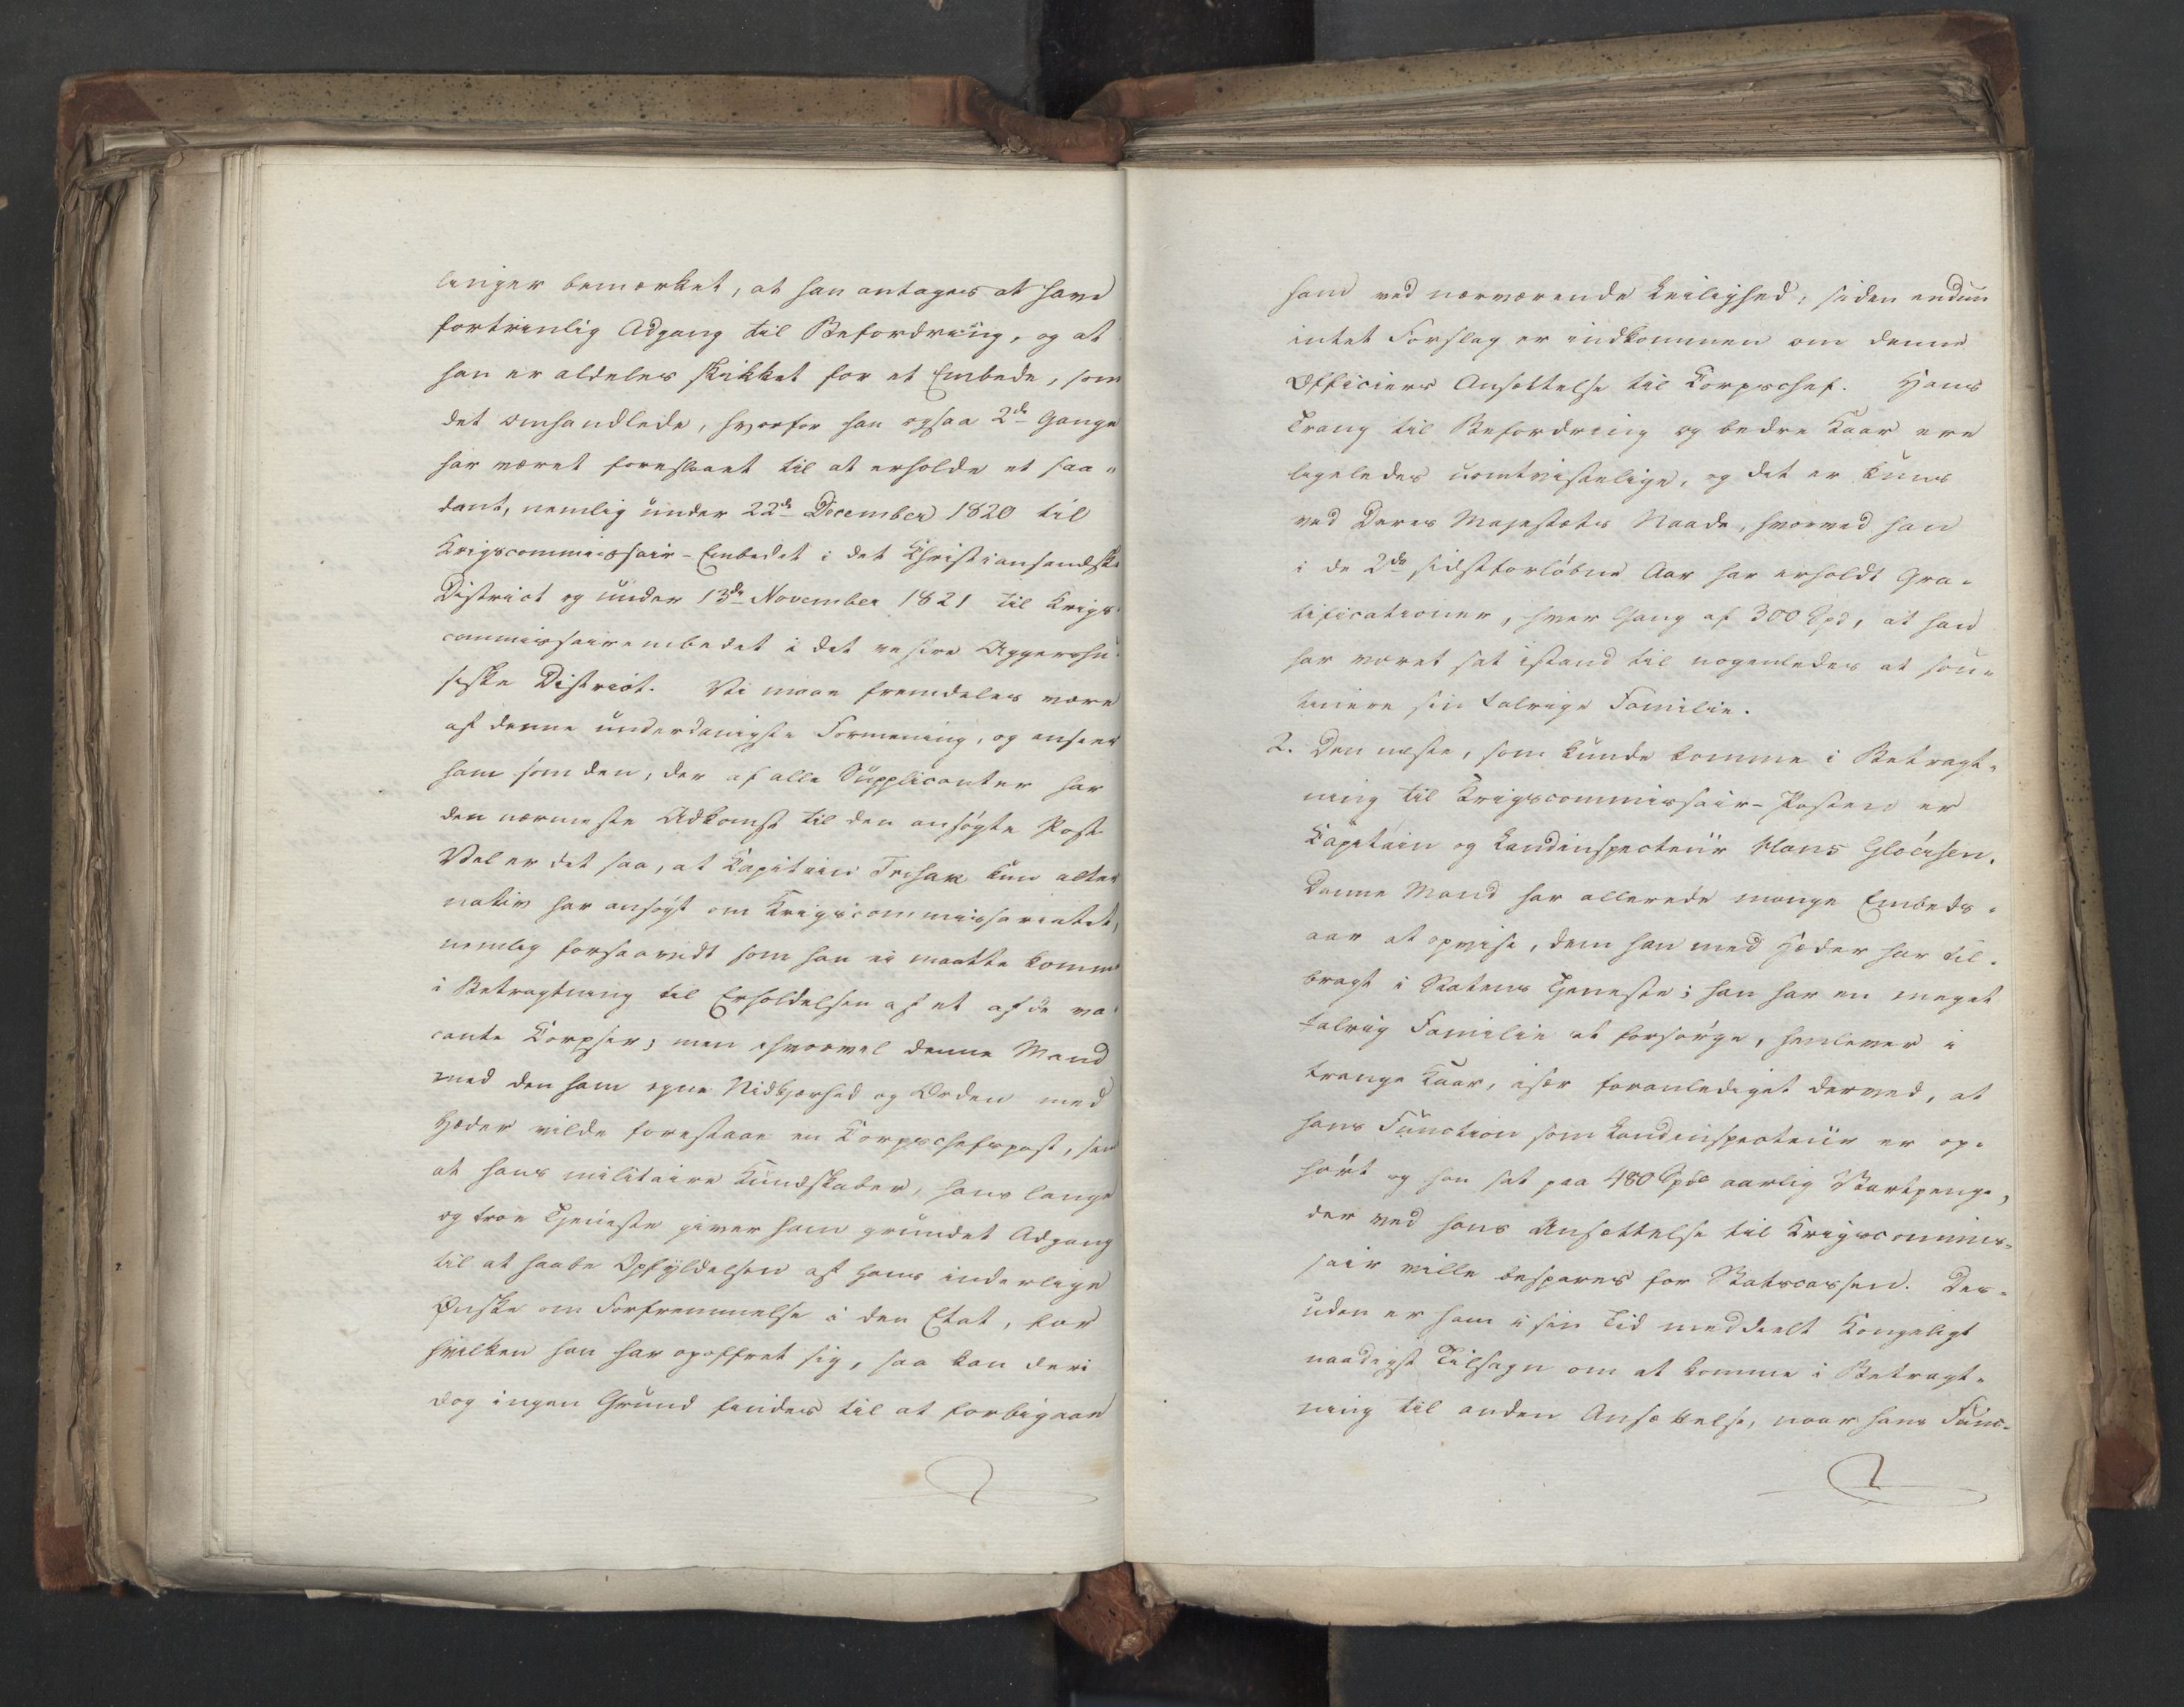 linger bemærket, at han antages at have
fortrinlig Adgang til Befordring, og at
han er aldeles skikket for et Embede, som
det omhandlede, hvorfor han ogsaa 2de Gange
har været foreslaaet til at erholde et saa-
dant, nemlig under 22de December 1820 til
Krigscommissair-Embedet i det Christiansandske
District og under 13de November 1821 til Krigs-
commissairembedet i det vestre Aggershu-
siske District. Vi maae fremdeles være
af denne underdanigste Formening, og ansee
ham som den, der af alle Supplicanter har
den nærmeste Adkomst til den ansøgte Post
Vel er det saa, at Capitain kun alter
nativ har ansøgt om Krigscommissariatet,
nemlig forsaavidt som han ei maatte komme
i Betragtning til Erholdelsen af et af de va-
cante Corpser; men ihvorvel denne Mand
med den ham egne Nidkjærhed og Orden med
Hæder vilde forestaae en Corpschefspost, samt
at hans militaire Kundskaber, hans lange
og troe Tjeneste giver ham grundet Adgang
til at haabe Opfyldelsen af hans inderlige
Ønske om Forfremmelse i den Etat, for
hvilken han har opoffret sig, saa kan deri
dog ingen Grund findes til at forbigaae
ham ved nærværende Leilighed, siden endnu
intet Forslag er indkommen om denne
Officiers Ansættelse til Corpschef. Hans
Trang til Befordring og bedre Kaar ere
ligeledes uomtvistelige, og det er kuns
ved Deres Majestæts Naade, hvorved han
i de 2de sidstforløbne Aar har erholdt Gra-
tificationer, hver Gang af 300 Spd, at han
har været sat istand til nogenledes at sou-
tinere sin talrige Familie.
2. Den næste, som kunde komme i Betragt-
ning til Krigscommissair-Posten er
Capitain og Landinspecteur Hans Gløersen.
Denne Mand har allerede mange Embeds-
aar at opvise, dem han med Hæder har til-
bragt i Statens Tjeneste; han har en meget
talrig Familie at forsørge, henlever i
trange Kaar, især foranlediget derved, at
hans Function som Landinspecteur er op-
hørt og han sat paa 480 Spd aarlig Vartpenge,
der ved hans Ansættelse til Krigscommis-
sair ville bespares for Statscassen. Des-
uden er ham i sin Tid meddeelt Kongeligt
naadigst Tilsagn om at komme i Betragt-
ning til anden Ansættelse, naar hans Func-